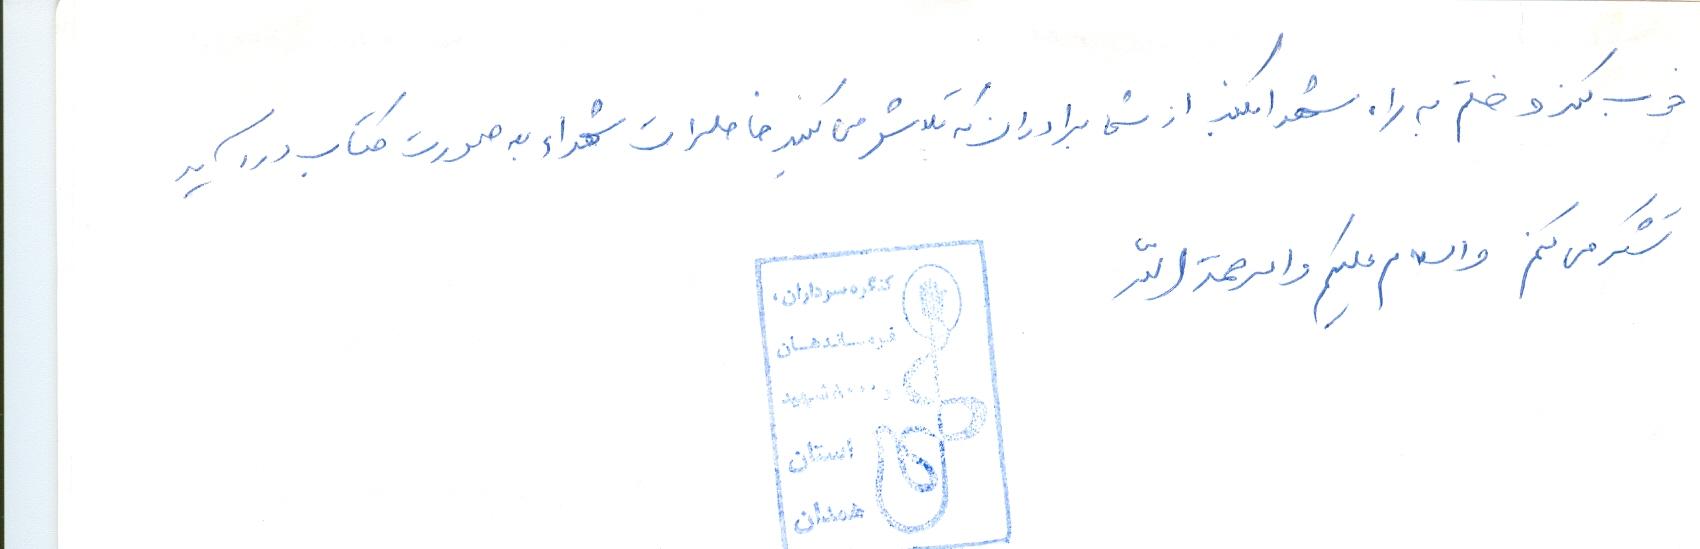 خوب بکند و ختم به راه شهدا بکند از شما برادران که تلاش می کنید خاطرات شهداء به صورت کتاب در آید
تشکر می کنم والسلام علیکم و الرحمة الله
کنگره سرداران،
فرماندهان
و ۸۰۰۰ شهید
استان
همدان